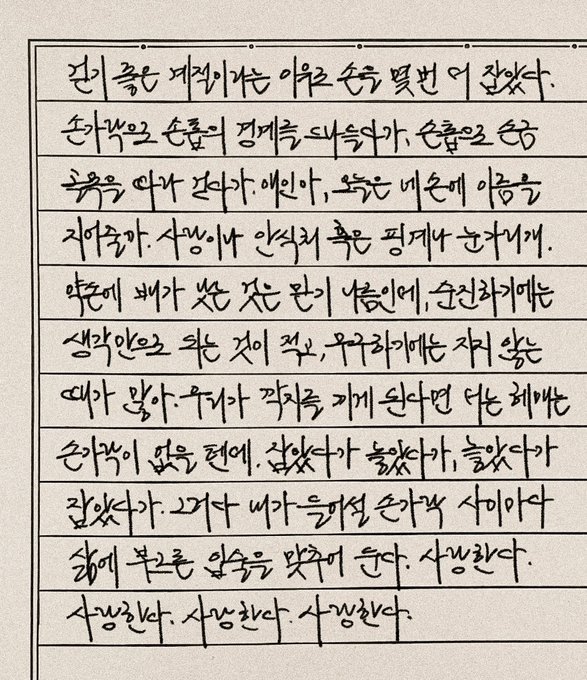 걷기 좋은 계절이라는 이유로 손을 몇 번 더 잡았다.
손가락으로 손톱의 경계를 더듬다가, 손톱으로 손금
골목을 따라 걷다가. 애인아, 오늘은 네 손에 이름을
지어줄까. 사랑이나 안식처 혹은 핑계나 눈가리개.
약손에 배가 낫는 것은 믿기 나름인데, 순진하기에는
생각만으로 되는 것이 적고, 무구하기에는 지지 않는
때가 많아. 우리가 깍지를 끼게 된다면 너는 헤매는
손가락이 없을 텐데. 잡았다가 놓았다가, 놓았다가
잡았다가. 그러다 내가 들어설 손가락 사이마다
삶에 부르튼 입술을 맞추어 둔다. 사랑한다.
사랑한다. 사랑한다. 사랑한다.